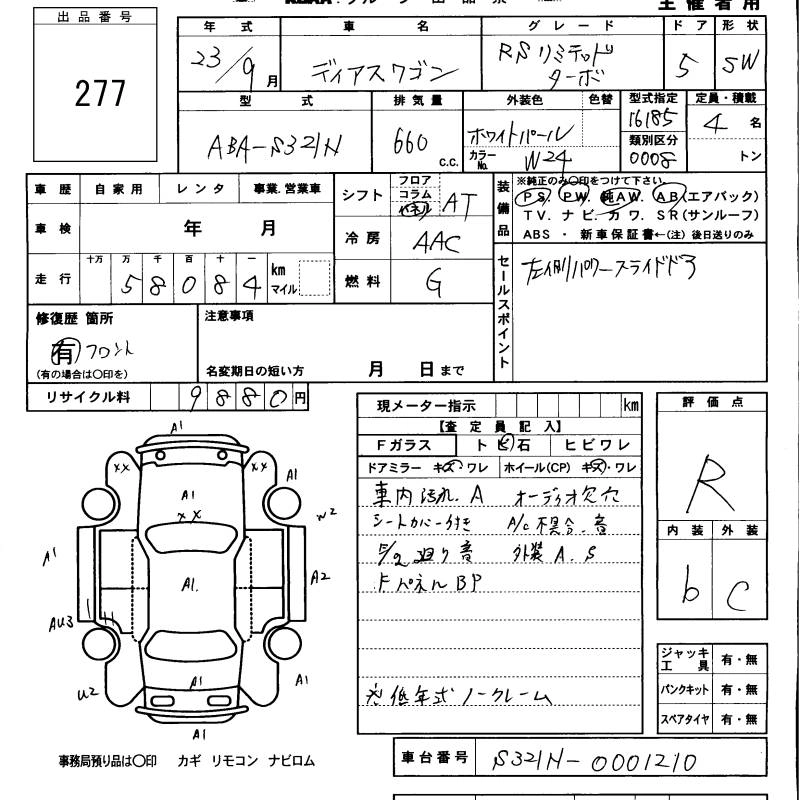 主催者用
出品番号
277
年式 車名 グレード ドア 形状
23/9月 ディアスワゴン RSリミテッド ターボ 5 SW
型式 排気量 外装色 色替 型式指定 定員・積載
ABA-S321N 660 C.C. ホワイトパール 16185 4 名
カラーNo. W24 類別区分 0008 トン
車歴 自家用 レンタ 事業.営業車
シフト フロア コラム パネル AT
装備品 ※純正のみ〇印をつけて下さい。
PS. PW. 純AW. AB(エアバック)
TV. ナビ. カワ. SR(サンルーフ)
ABS ・ 新車保証書←(注) 後日送りのみ
車検 年 月
冷房 AAC
走行 十万 万 千 百 十 一
58084 km マイル
燃料 G
セールスポイント 左側パワースライドドア
修復歴 箇所
有 フロント
(有の場合は〇印を)
注意事項
名変期日の短い方 月 日まで
リサイクル料 9880円
現メーター指示 km
【査定員記入】
Fガラス トビ石 ヒビワレ
ドアミラー キズ・ワレ ホイール(CP) キズ・ワレ
車内汚れ. A オーディオ欠穴
シートカバー付き A/C不具合.音
F/2 廻り音 外装 A. S
Fパネル BP
※低年式ノークレーム
評価点
R
内装 外装
b C
ジャッキ工具 有・無
パンクキット 有・無
スペアタイヤ 有・無
A1
XX XX
A1
A1
XX
W2
A1
A1.
A2
AU3
U2
A1
A1
A1
事務局預り品は〇印 カギ リモコン ナビロム
車台番号 S321N-0001210